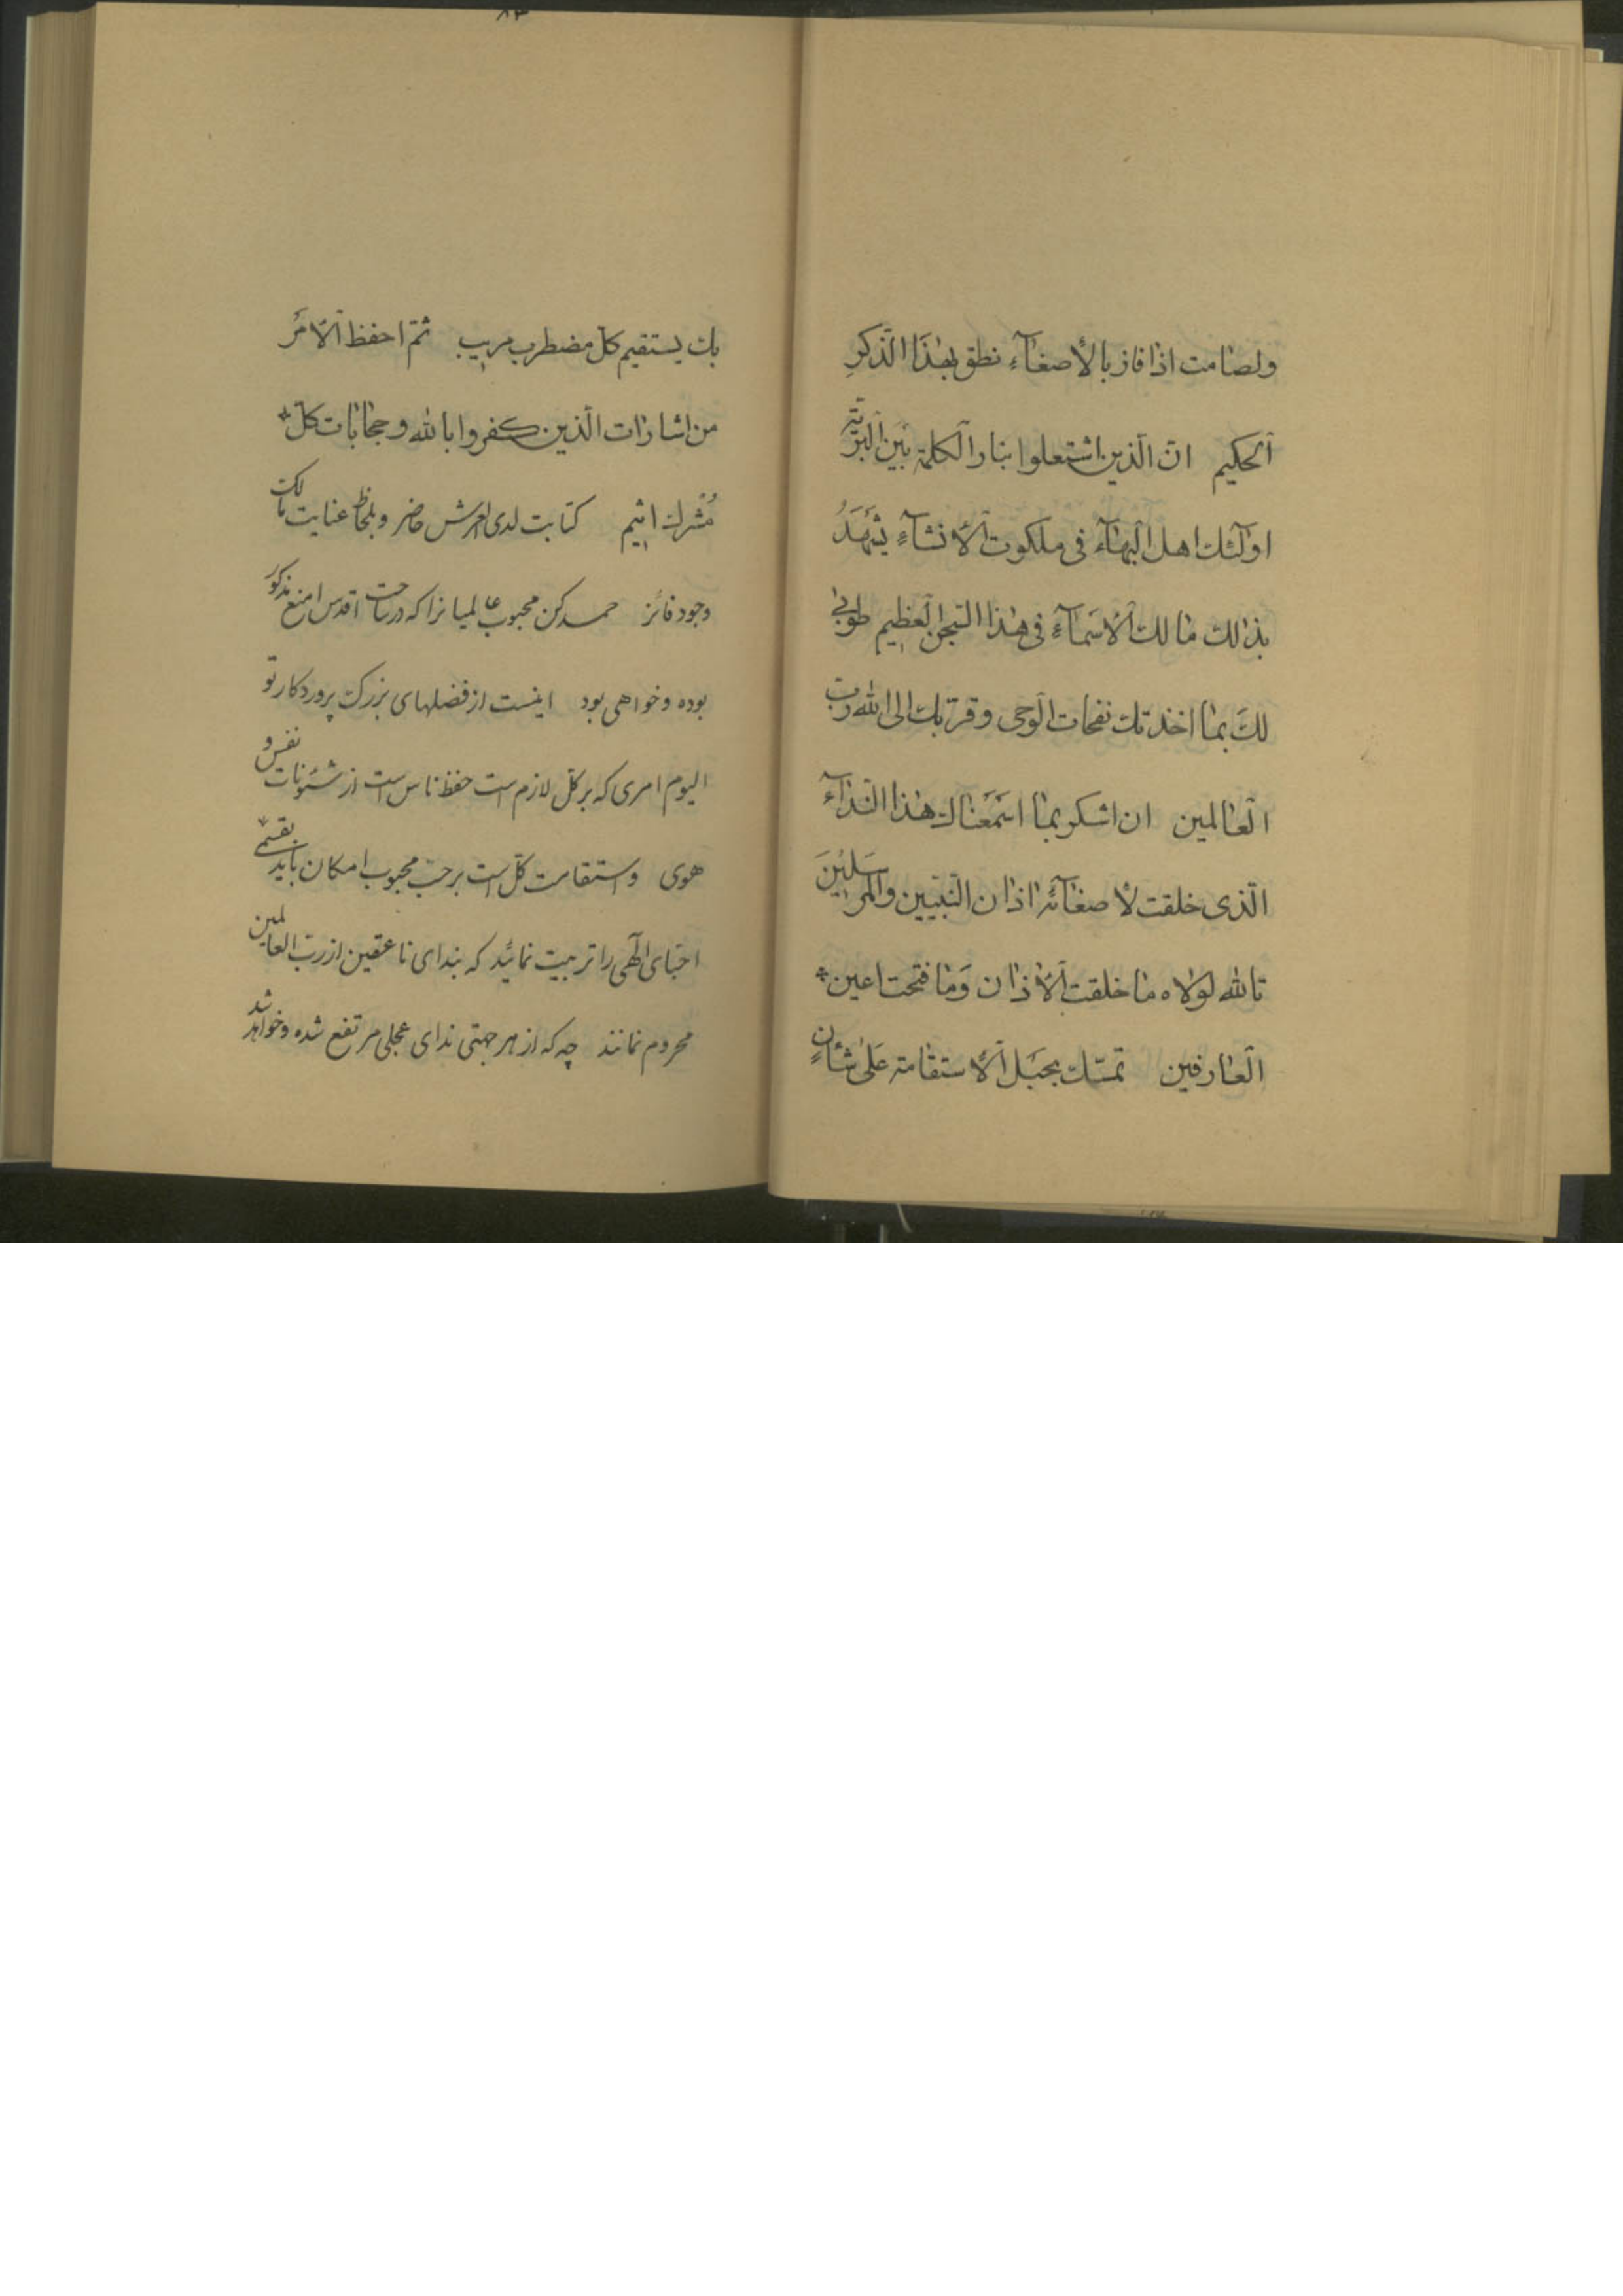 ولصامت اذا فاز بالأصغآء نطق بهذا الذّکرِ
الحکیم انّ الّذین اشتعلوا بنار الکلمة بین البریّة
اولٓئك اهل البهآء فی ملکوت الأنشآءِ یشهدُ
بذالك مالك الأسمآءِ فی هذا السّجن العظیم طوبی
لكَ بما اخذتك نفحات الوحی و قرّبك الی الله ربّ
العالمین ان اشکر بما اسمعناك هذا النّدآء
الّذی خلقت لأصغآئه اذان النّبیّین والمرسلینَ
تالله لولاه ما خلقت الأذان وَما فتحت اعین
العارفین تمسّك بحبل الأستقامة علی شأنٍ
بك یستقیم کلّ مضطرب مریب ثمّ احفظ الأمر
من اشارات الّذین کفروا بالله و حجبات کلّ
مُشرك اثیم کتابت لدی العرش حاضر و بلحاظ عنایت مالک
وجود فائز حمد کن محبوب عالمیانرا که در ساحت اقدس امنع مذکور
بوده و خواهی بود اینست از فضلهای بزرگ پروردکار تو
الیوم امری که بر کلّ لازم است حفظ ناس است از شئونات نفس و
هوی و استقامت کلّ است بر حبّ محبوب امکان باید بقسمی
احبّای الٓهی را تربیت نمائید که بندای ناعقین از ربّ العالمین
محروم نمانند چه که از هر جهتی ندای عجلی مرتفع شده و خواهد شد